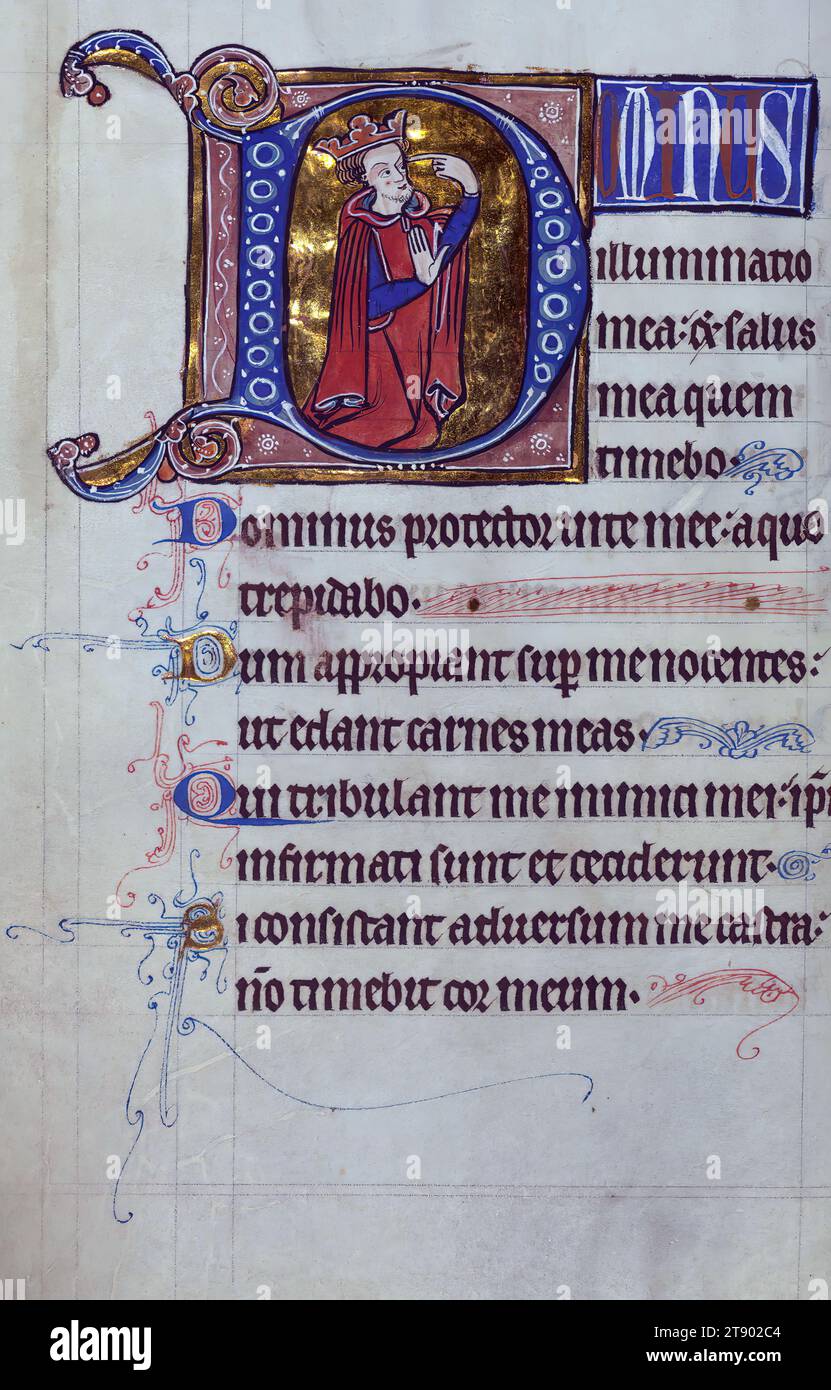 DOMINUS
illuminatio
mea: & salus
mea quem
timebo.
Dominus protector uite mee: a quo
trepidabo.
Dum appropiant sup me nocentes:
ut edant carnes meas.
Qui tribulant me inimici mei: ipi
infirmati sunt et ceciderunt.
Si consistant aduersum me castra:
no timebit cor meum.
alamy
Image ID: 2T902C4
www.alamy.com